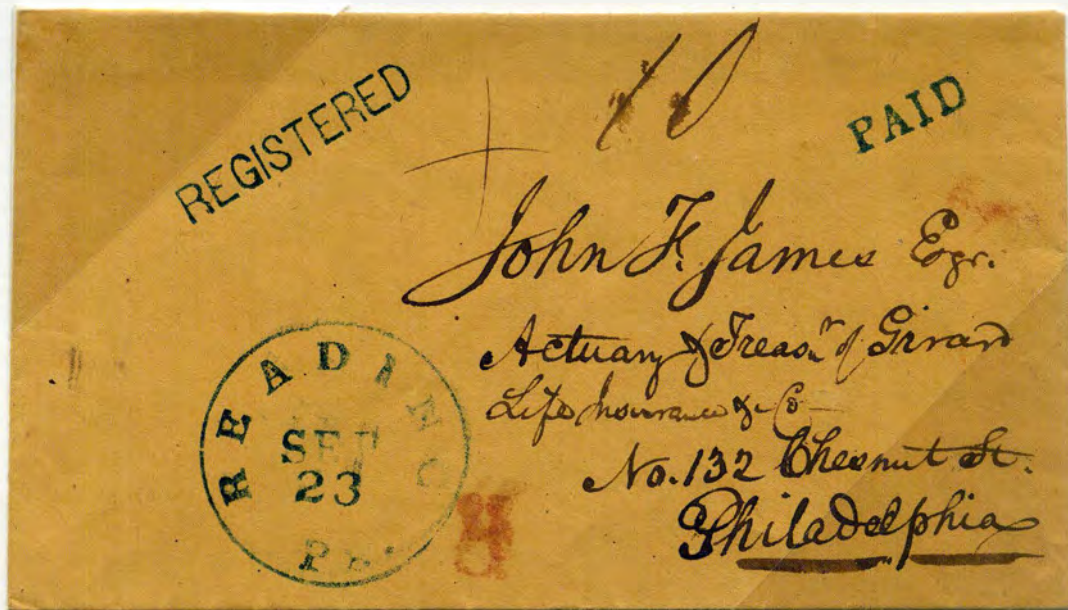 REGISTERED
10
PAID
John F. James Esqr.
Actuary & Treasr of Girard
Life Insurance &c Co
No. 132 Chesnut St.
Philadelphia
READING
SEP
23
Pa.